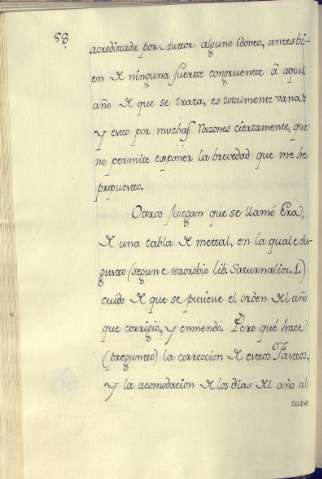 58.
acreditada por Autor alguno idoneo, antes bi-
en de ninguna suerte congruente à aquel
año de que se trata, es totalmente vana:
y esto por muchas razones ciertamente, que
no permite exponer la brevedad que me he
propuesto.
Otros juzgan que se llamó Era,
de una tabla de mettal, en la qual Au-
gusto (segun Macrobio lib. Saturnalior. 1.)
cuidó de que se pusiese el orden del año
que corrigio, y enmendó. Pero qué hace
(pregunto) la correccion de estos Fastos,
y la acomodacion de los dias del año al
curso